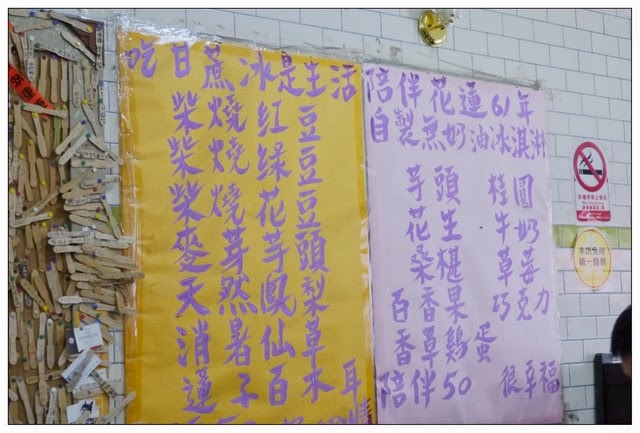 吃甘蔗冰是生活
柴燒紅豆
柴燒綠豆
柴燒花豆
麥芽芋頭
天然鳳梨
消暑仙草
蓮子百木耳
陪伴花蓮61年
自製無奶油冰淇淋
芋頭 桂圓
花生 牛奶
桑椹 草莓
百香果 巧克力
香草雞蛋
陪伴50 很幸福
本店免用
統一發票